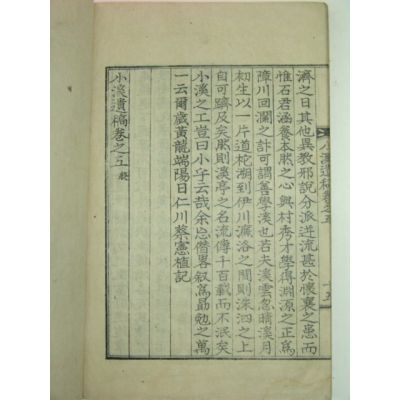 濟之日其他異教邪說分派迸流甚於懷襄之患而
惟石君涵養本然之心與村秀才學得淵源之正爲
障川回瀾之計可謂善學溪也若夫溪雲忽晴溪月
初生以一片道柁湖到伊川濂洛之間則洙泗之上
自可躋及矣然則溪亭之名流傳千百載而不泯矣
小溪之工豈曰小乎云哉余忘僭畧敘爲勗勉之萬
一云爾歲黃龍端陽日仁川蔡憲植記
小溪遺稿卷之五 終
小溪遺稿卷之五
十五